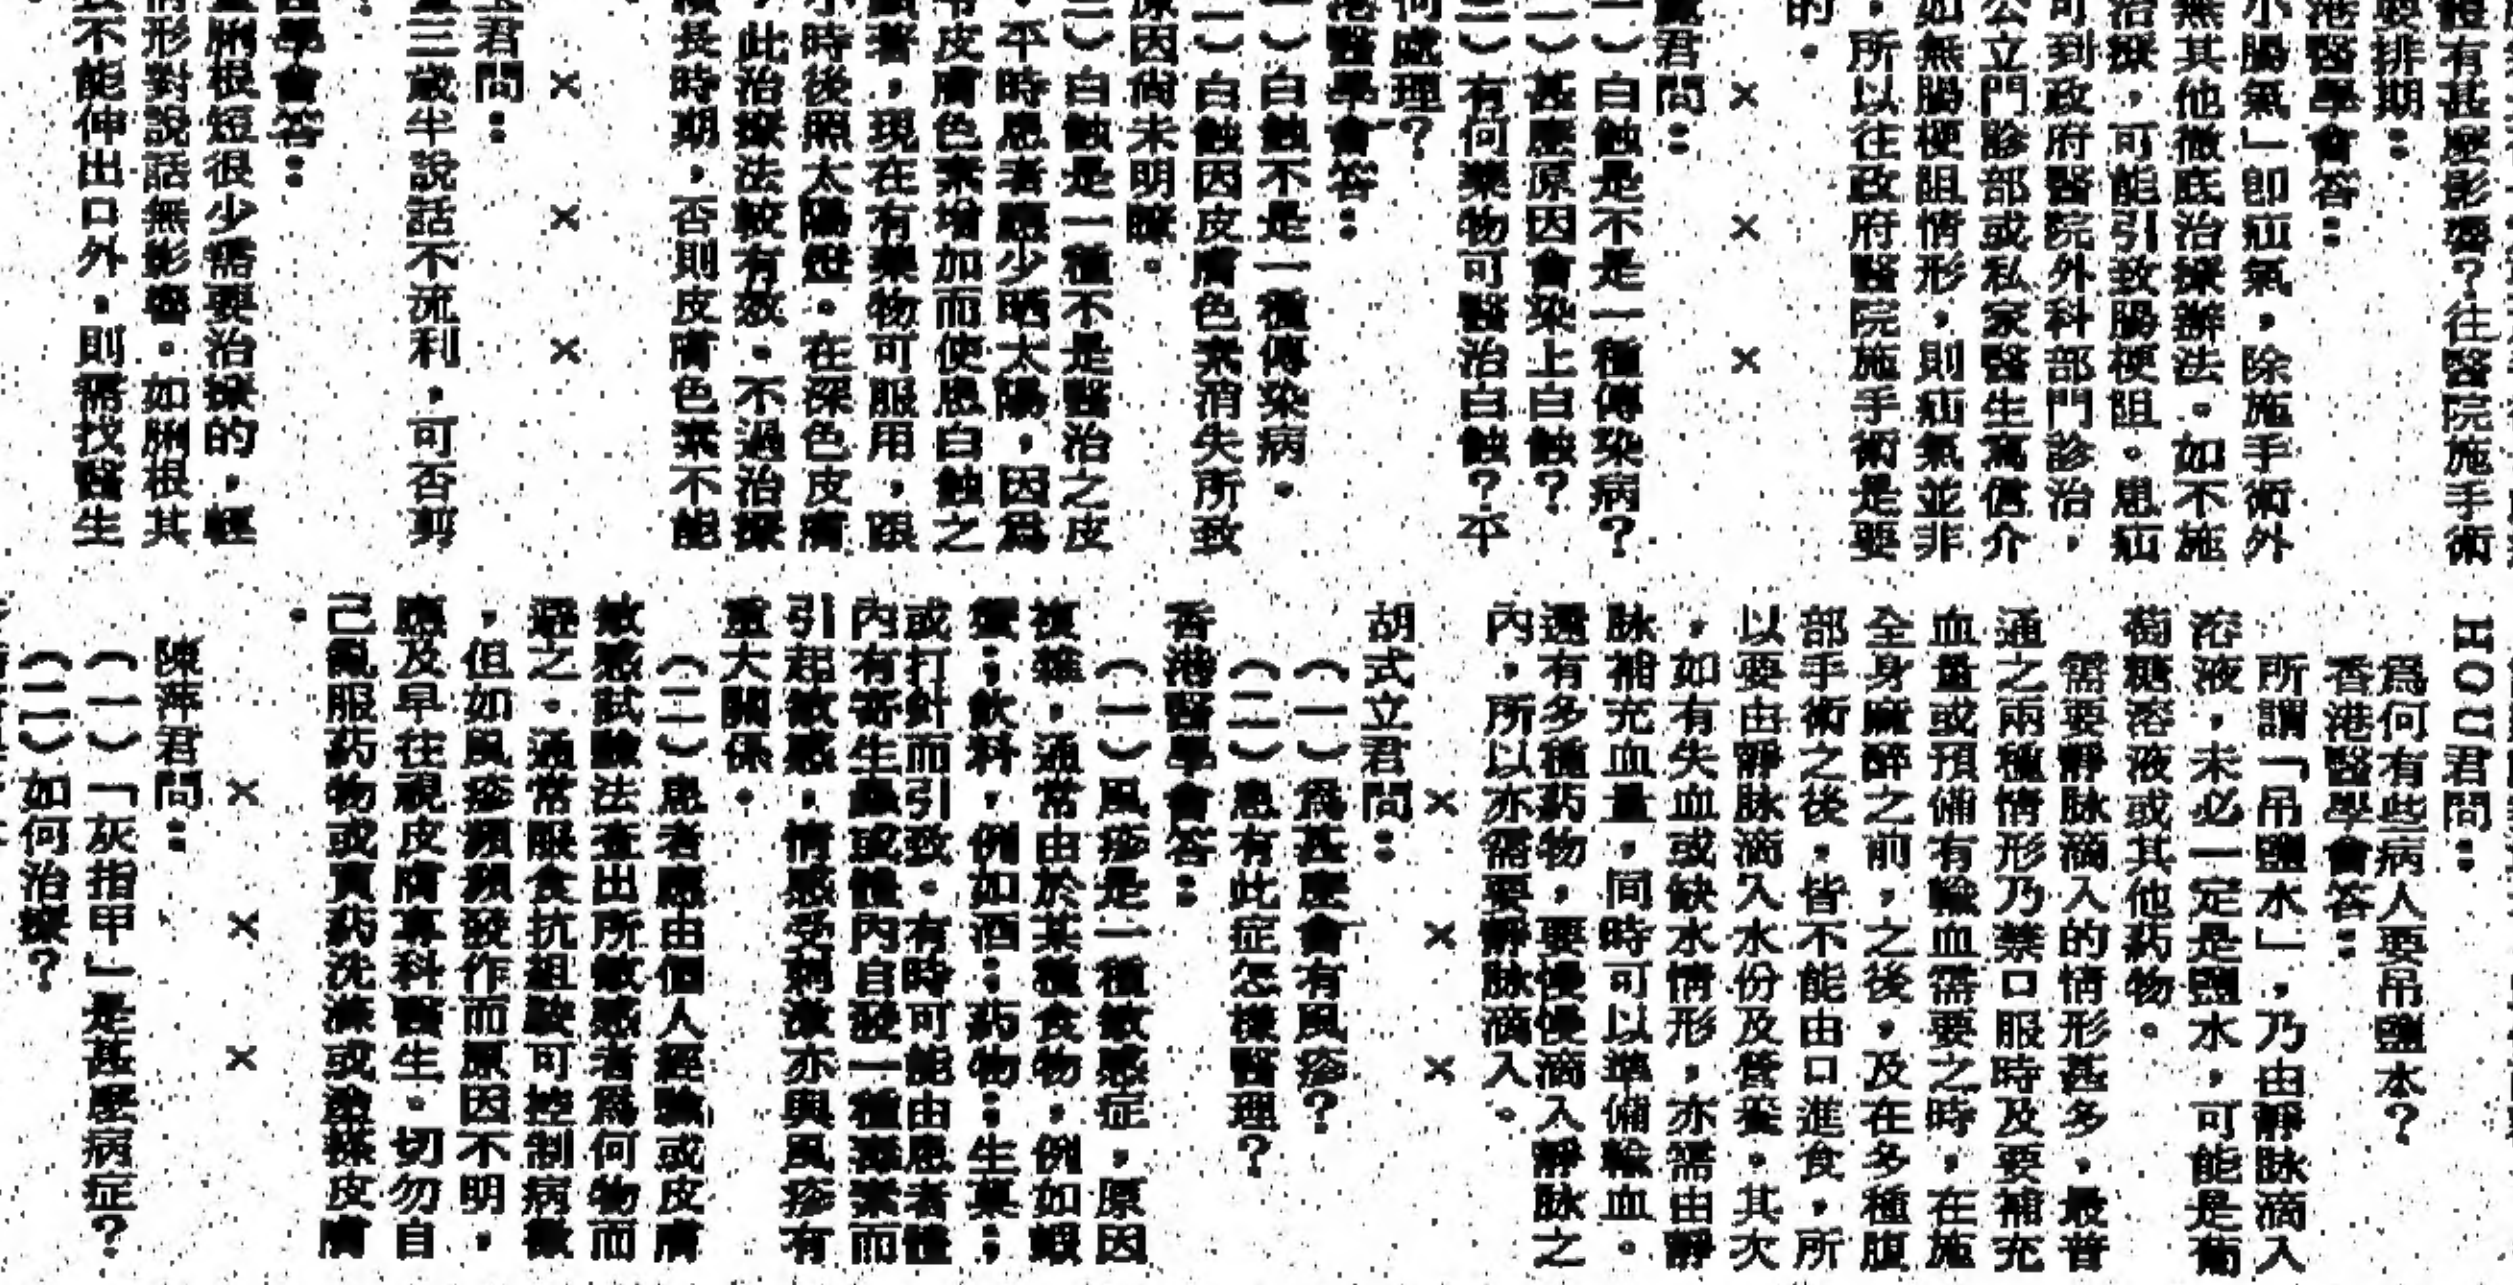 體有甚麼影響?往醫院施手術
要排期:
港醫學會答:
小腸氣」卽疝氣,除施手術外
無其他徹底治療辦法。如不施
治療,可能引致腸梗阻。患疝
可到政府醫院外科部門診治,
公立門診部或私家醫生寫信介
如無腸梗阻情形,則疝氣並非
,所以往政府醫院施手術是要
的。
× × ×
君問:
一)白蝕是不是一種傳染病?
二)甚麼原因會染上白蝕?
三)有何藥物可醫治白蝕?平
何處理?
港醫學會答:
一)白蝕不是一種傳染病。
二)白蝕因皮膚色素消失所致
原因尙未明瞭。
三)白蝕是一種不是醫治之皮
。平時患者應少晒太陽,因爲
皮膚色素增加而使患白蝕之
顯著,現在有藥物可服用,服
小時後照太陽燈。在深色皮膚
,此治療法較有效。不過治療
須長時期,否則皮膚色素不能
× × ×
君問:
三歲半說話不流利,可否剪
醫學會答:
脷根短很少需要治療的,輕
情形對說話無影響。如脷根其
不能伸出口外,則需找醫生
HOU君問:
爲何有些病人要吊鹽水?
香港醫學會答:
所謂「吊鹽水」,乃由靜脉滴入
溶液,未必一定是鹽水,可能是葡
萄糖溶液或其他藥物。
需要靜脉滴入的情形甚多,最普
通之兩種情形乃禁口服時及要補充
血量或預備有輸血需要之時,在施
全身麻醉之前,之後,及在多種腹
部手術之後,皆不能由口進食,所
以要由靜脉滴入水份及營養。其次
,如有失血或缺水情形,亦需由靜
脉補充血量,同時可以準備輸血。
還有多種葯物,要慢慢滴入靜脉之
內,所以亦需要靜脉滴入。
× × ×
胡式立君問:
(一)爲甚麼會有風疹?
(二)患有此症怎樣醫理?
香港醫學會答:
(一)風疹是一種敏感症,原因
複雜,通常由於某種食物,例如蝦
蟹;飲料,例如酒;葯物;生菓;
或打針而引致。有時可能由患者體
內有寄生蟲或體內自發一種毒素而
引起敏感,情感受刺激亦與風疹有
重大關係。
(二)患者應由個人經驗或皮膚
敏感試驗法查出所敏感者爲何物而
避之。通常服食抗組胺可控制病徵
,但如風疹頻頻發作而原因不明,
應及早往視皮膚專科醫生。切勿自
己亂服葯物或買葯洗滌或塗搽皮膚
。
× × ×
陳萍君問:
(一)「灰指甲」是甚麼病症?
(二)如何治療?